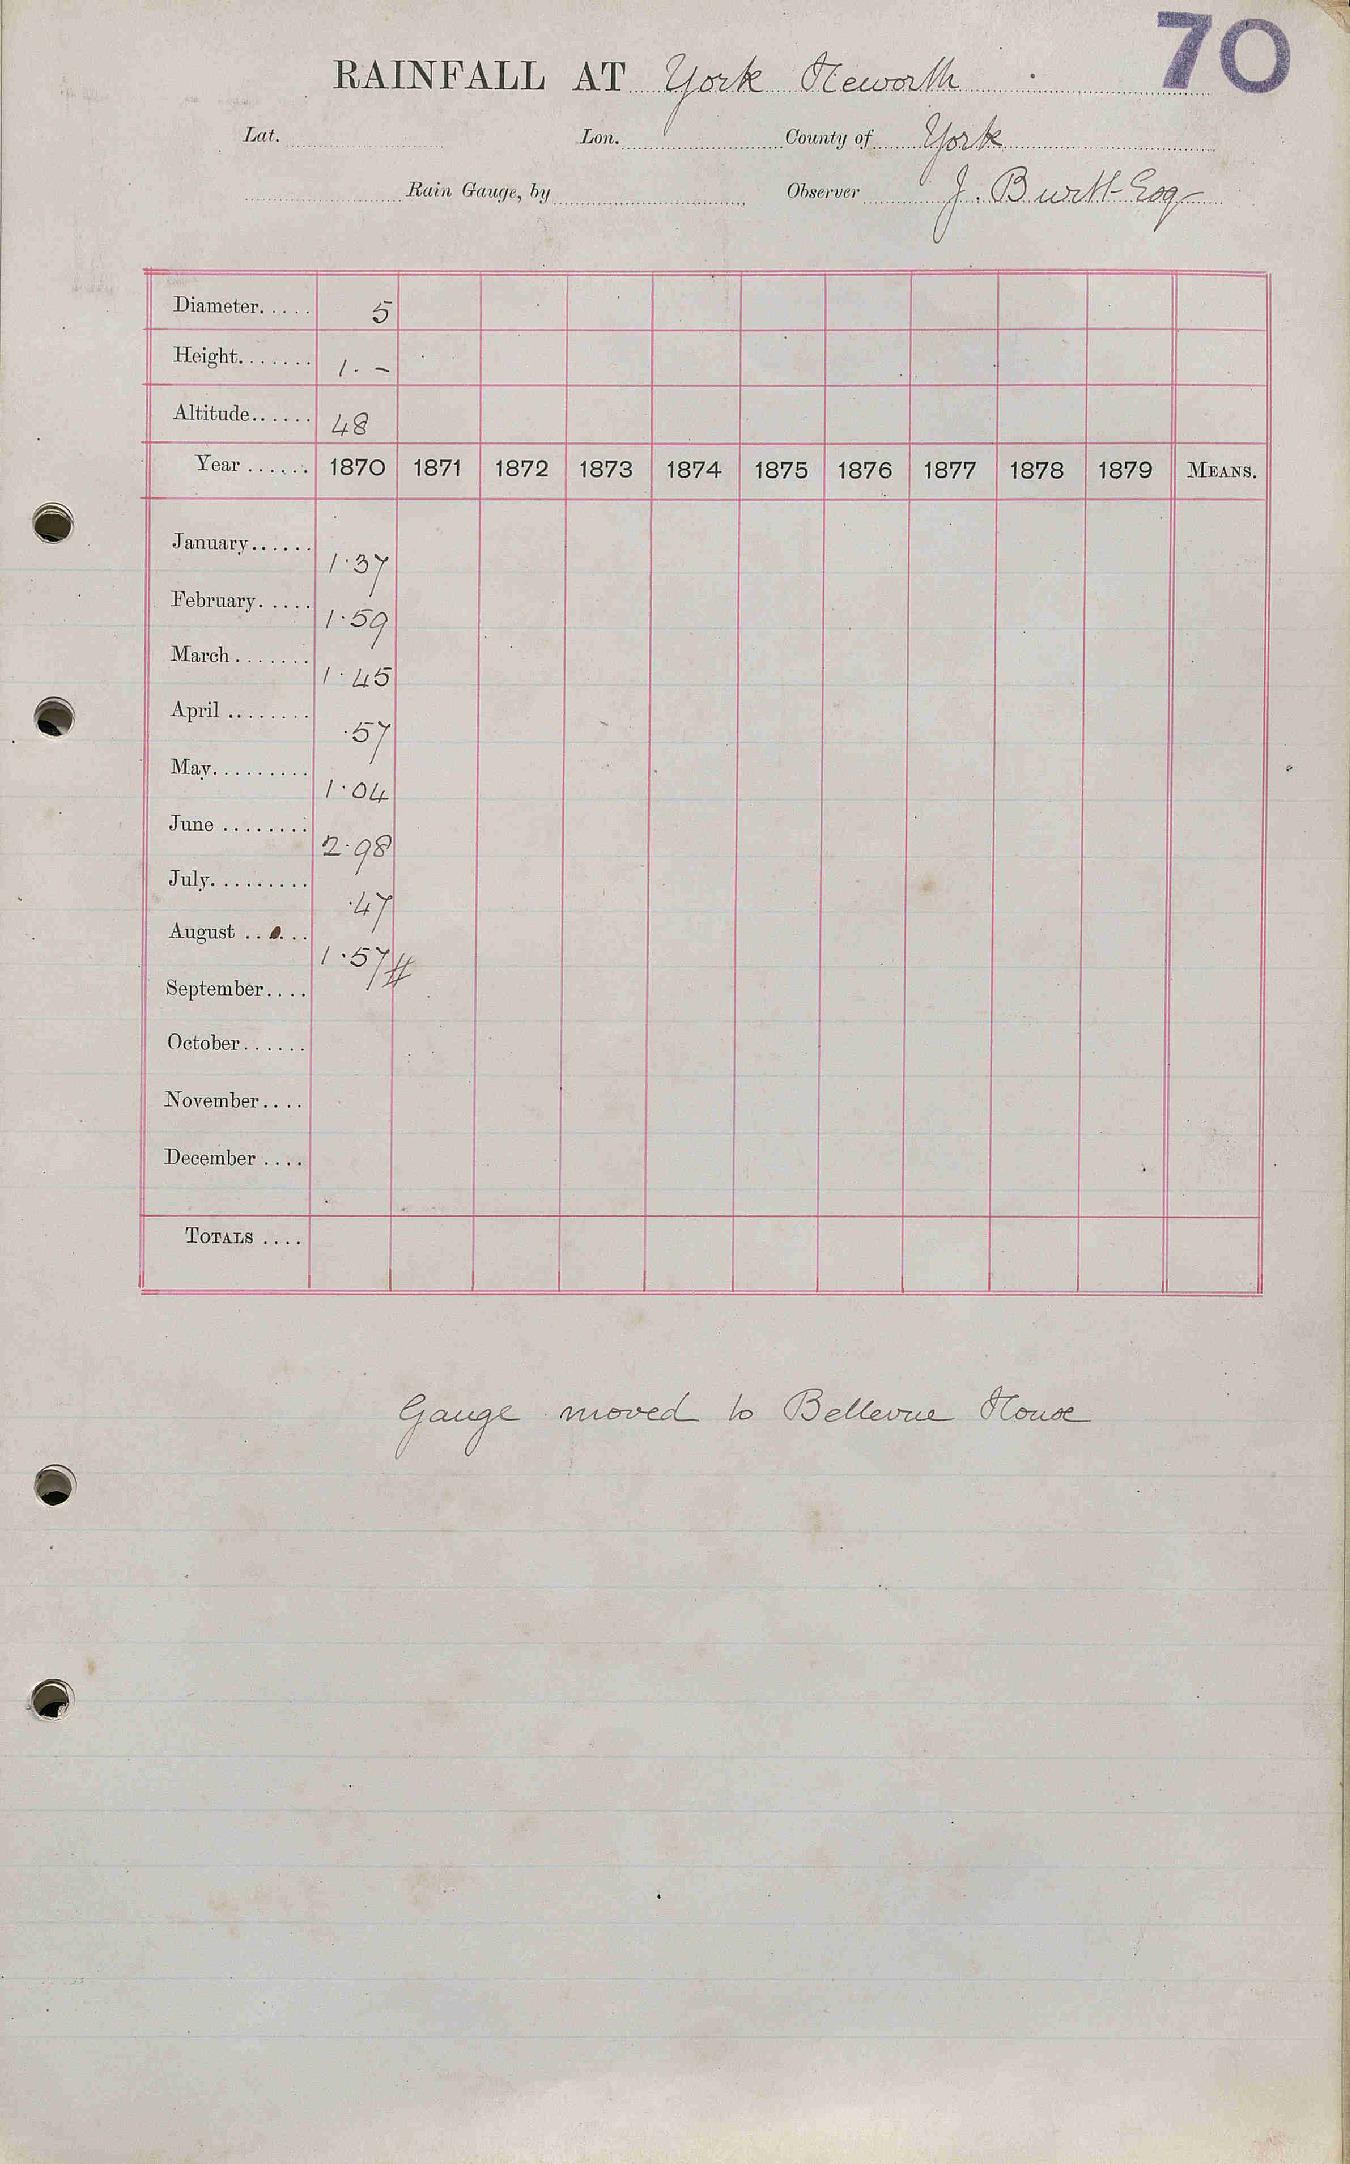 70
RAINFALL AT York Heworth
Lat. Lon. County of York
Rain Gauge, by Observer J. Burtt Esq
Diameter..... 5
Height....... 1. –
Altitude...... 48
Year ...... 1870 1871 1872 1873 1874 1875 1876 1877 1878 1879 MEANS.
January...... 1·37
February..... 1·59
March ....... 1·45
April ........ ·57
May......... 1·04
June ........ 2·98
July......... ·47
August ...... 1·57 #
September....
October......
November....
December ....
TOTALS ....
Gauge moved to Bellevue House